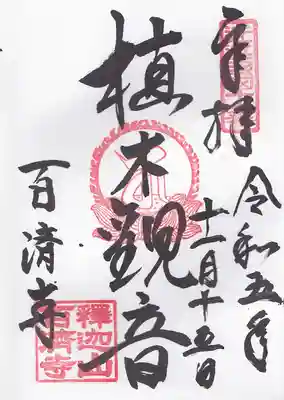 奉拝
令和五年
十一月十五日
植木觀音
百済寺
釋迦山
百濟寺